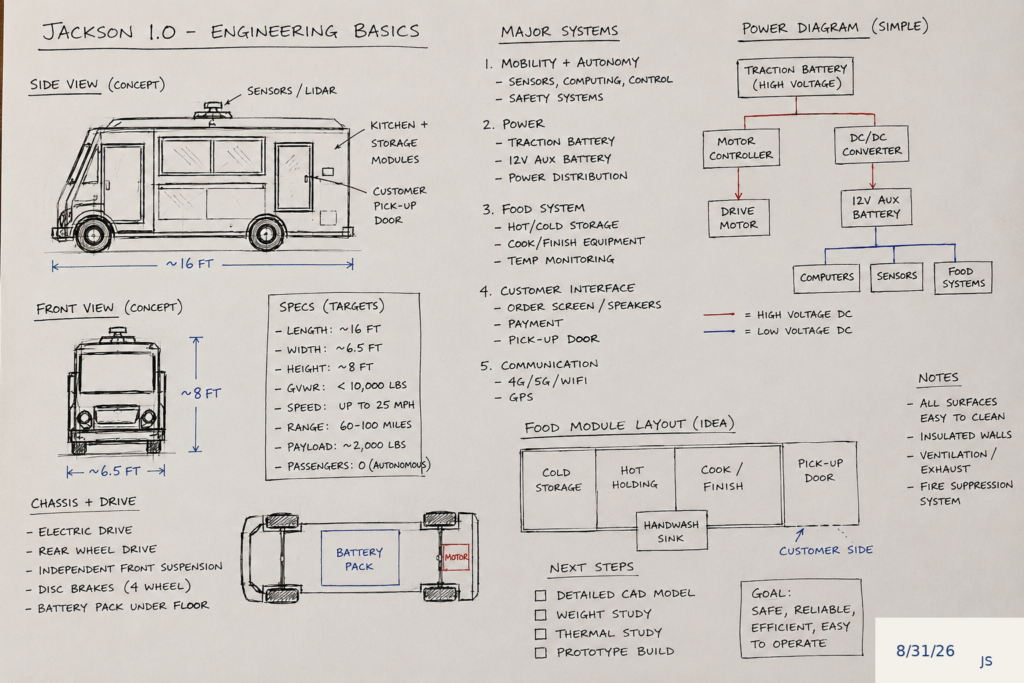 JACKSON 1.0 – ENGINEERING BASICS
SIDE VIEW (CONCEPT)
SENSORS / LIDAR
KITCHEN +
STORAGE
MODULES
CUSTOMER
PICK-UP
DOOR
~16 FT
FRONT VIEW (CONCEPT)
~8 FT
~6.5 FT
SPECS (TARGETS)
– LENGTH: ~16 FT
– WIDTH: ~6.5 FT
– HEIGHT: ~8 FT
– GVWR: < 10,000 LBS
– SPEED: UP TO 25 MPH
– RANGE: 60-100 MILES
– PAYLOAD: ~2,000 LBS
– PASSENGERS: 0 (AUTONOMOUS)
CHASSIS + DRIVE
– ELECTRIC DRIVE
– REAR WHEEL DRIVE
– INDEPENDENT FRONT SUSPENSION
– DISC BRAKES (4 WHEEL)
– BATTERY PACK UNDER FLOOR
BATTERY
PACK
MOTOR
MAJOR SYSTEMS
1. MOBILITY + AUTONOMY
– SENSORS, COMPUTING, CONTROL
– SAFETY SYSTEMS
2. POWER
– TRACTION BATTERY
– 12V AUX BATTERY
– POWER DISTRIBUTION
3. FOOD SYSTEM
– HOT/COLD STORAGE
– COOK/FINISH EQUIPMENT
– TEMP MONITORING
4. CUSTOMER INTERFACE
– ORDER SCREEN / SPEAKERS
– PAYMENT
– PICK-UP DOOR
5. COMMUNICATION
– 4G/5G/WIFI
– GPS
POWER DIAGRAM (SIMPLE)
TRACTION BATTERY
(HIGH VOLTAGE)
MOTOR
CONTROLLER
DC/DC
CONVERTER
DRIVE
MOTOR
12V AUX
BATTERY
COMPUTERS
SENSORS
FOOD
SYSTEMS
= HIGH VOLTAGE DC
= LOW VOLTAGE DC
FOOD MODULE LAYOUT (IDEA)
COLD
STORAGE
HOT
HOLDING
COOK /
FINISH
PICK-UP
DOOR
HANDWASH
SINK
CUSTOMER SIDE
NOTES
– ALL SURFACES
EASY TO CLEAN
– INSULATED WALLS
– VENTILATION /
EXHAUST
– FIRE SUPPRESSION
SYSTEM
NEXT STEPS
☐ DETAILED CAD MODEL
☐ WEIGHT STUDY
☐ THERMAL STUDY
☐ PROTOTYPE BUILD
GOAL:
SAFE, RELIABLE,
EFFICIENT, EASY
TO OPERATE
8/31/26
JS